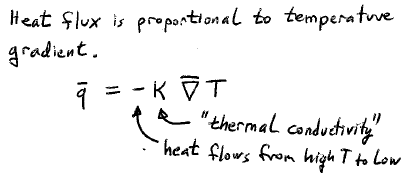 Heat flux is proportional to temperature
gradient.
q̄ = -K ∇̄ T
"thermal conductivity"
heat flows from high T to Low